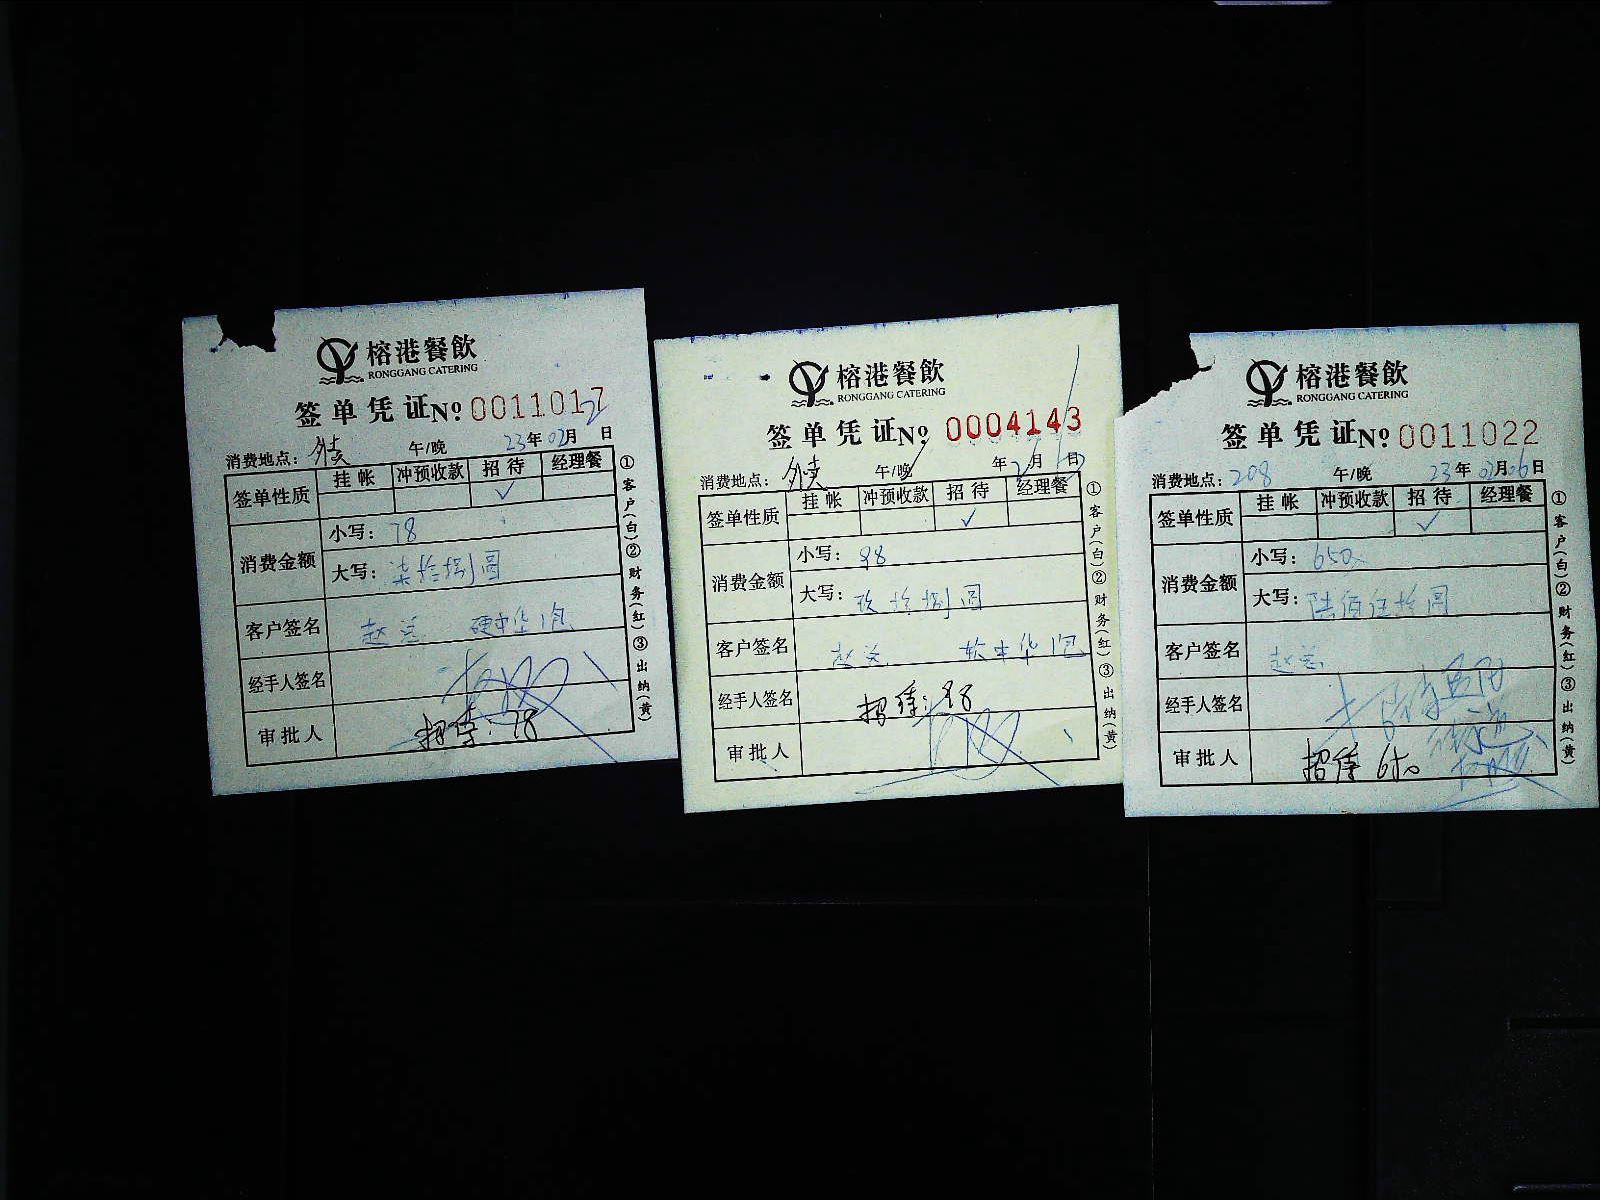 榕港餐飲
RONGGANG CATERING
签单凭证 № 0011017
消费地点：外卖 午/晚 23年02月 日
签单性质 挂帐 冲预收款 招待 经理餐
✓
消费金额 小写：78
大写：柒拾捌圆
客户签名 赵总 硬中华1包
经手人签名
审批人 招待：78
①客户(白)②财务(红)③出纳(黄)
榕港餐飲
RONGGANG CATERING
签单凭证 № 0004143
消费地点：外卖 午/晚 年2月 日
签单性质 挂帐 冲预收款 招待 经理餐
✓
消费金额 小写：98
大写：玖拾捌圆
客户签名 赵总 软中华1包
经手人签名 招待：98
审批人
①客户(白)②财务(红)③出纳(黄)
榕港餐飲
RONGGANG CATERING
签单凭证 № 0011022
消费地点：208 午/晚 23年02月06日
签单性质 挂帐 冲预收款 招待 经理餐
✓
消费金额 小写：650
大写：陆佰伍拾圆
客户签名 赵总
经手人签名
审批人 招待 650
①客户(白)②财务(红)③出纳(黄)